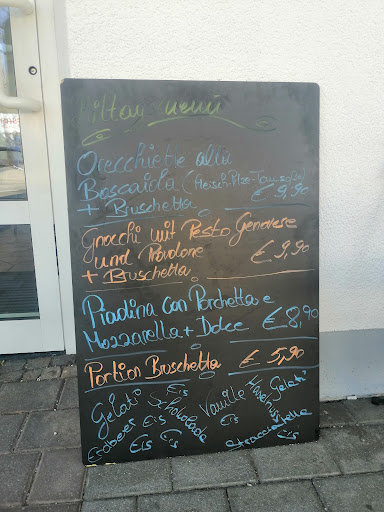 Mittag menü
Orecchiette alla
Boscaiola (Fleisch-Pilze-Tom.soße)
+ Bruschetta € 9,90
Gnocchi mit Pesto Genovese
und Provolone
+ Bruschetta € 9,90
Piadina con Porchetta e
Mozzarella + Dolce € 8,90
Portion Bruschetta € 5,90
Gelati Eis Schokolade Eis Vanille Eis Haselnuss Gelati
Erdbeer Eis Eis stracciatella
Eis